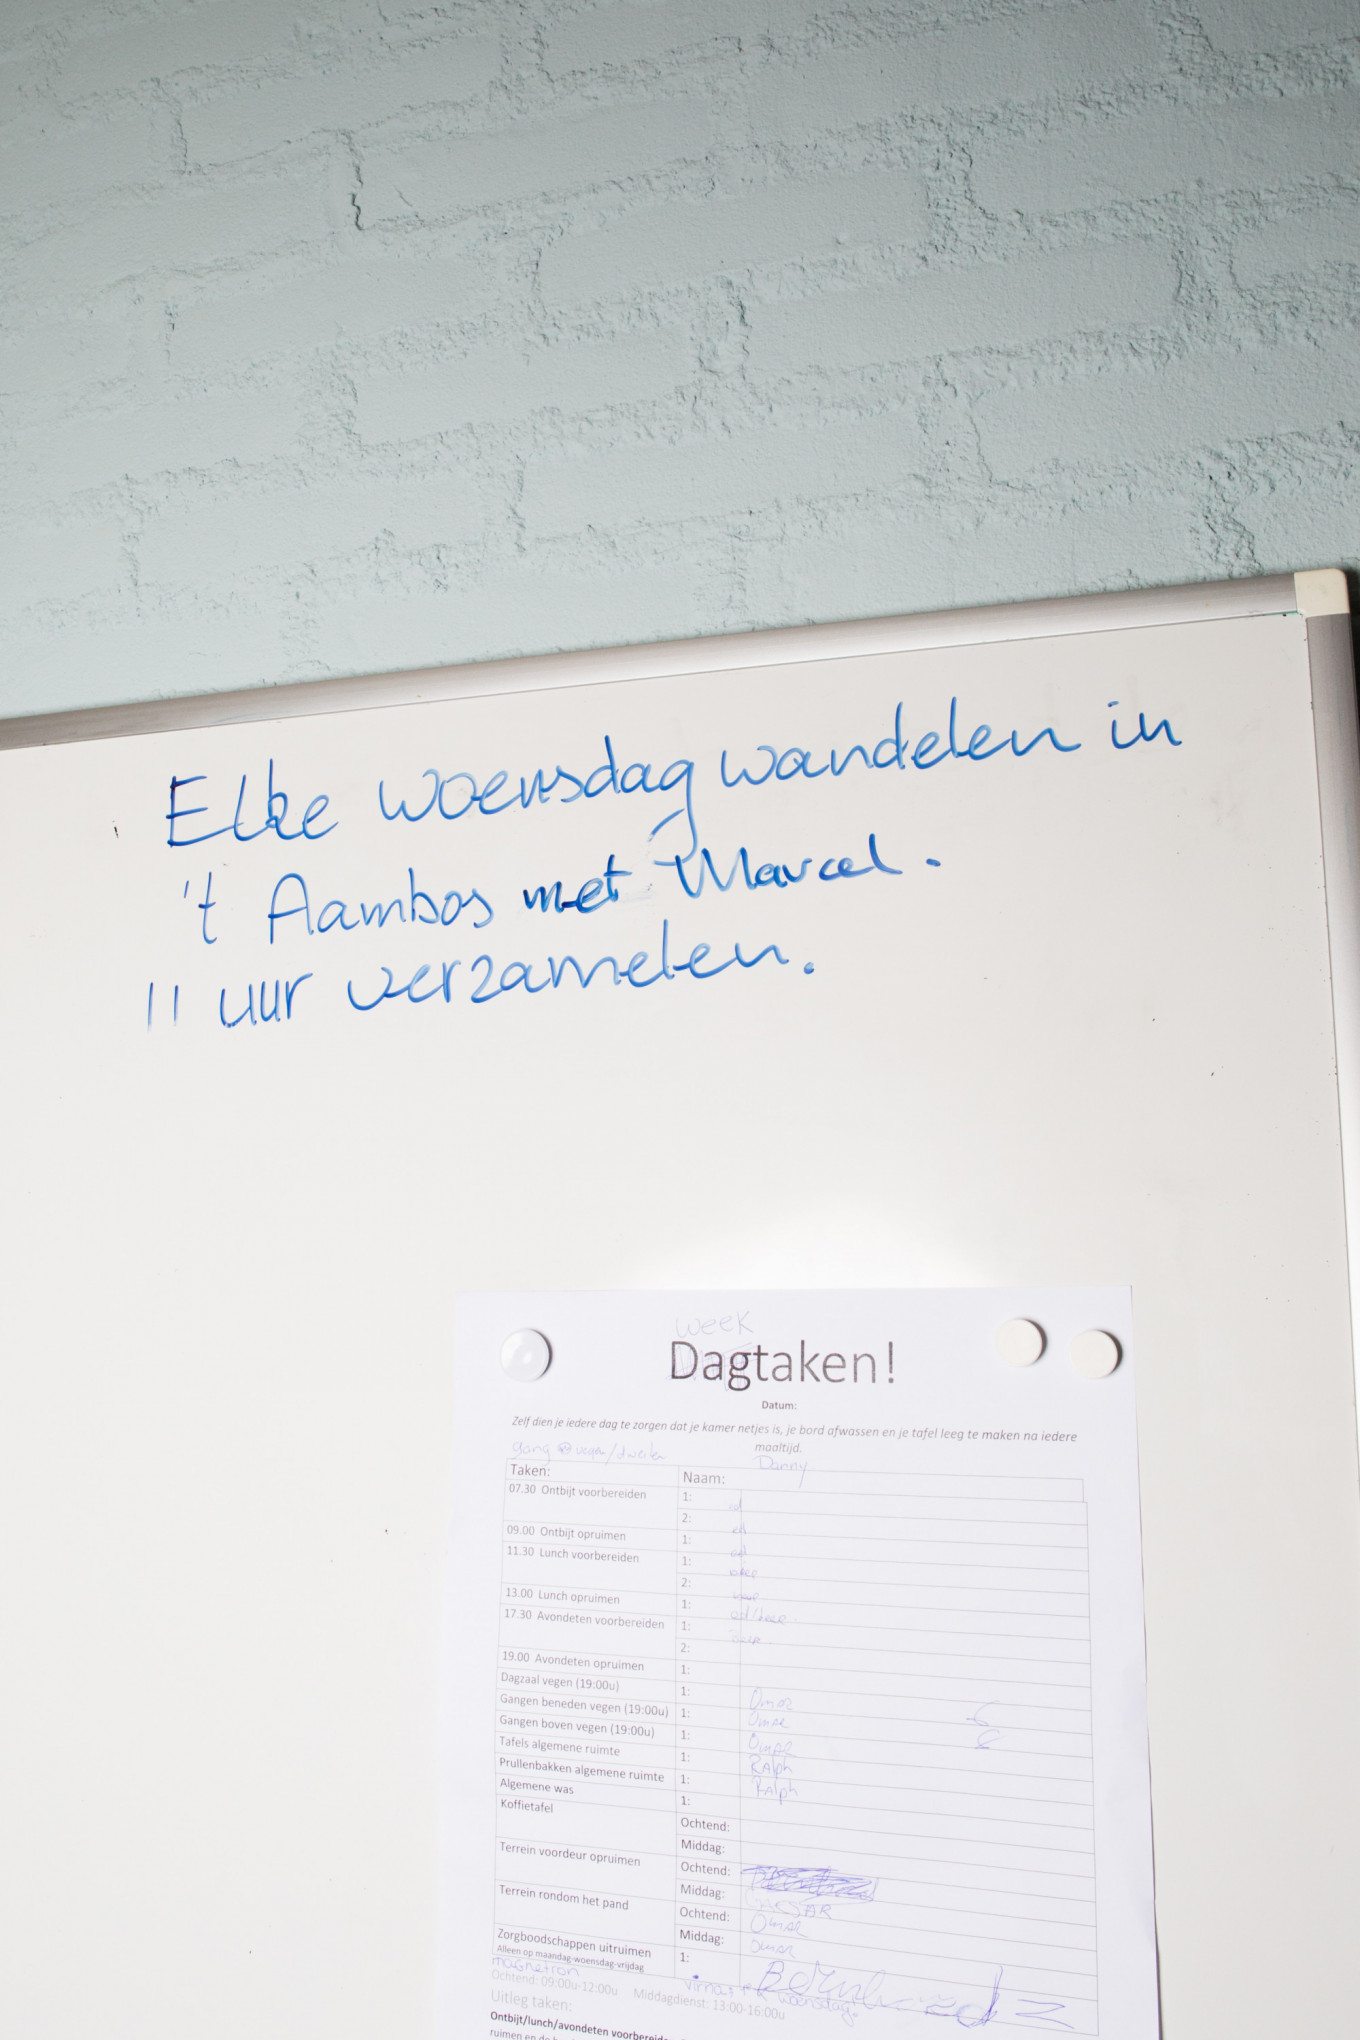 Elke woensdag wandelen in
't Aambos met Marcel.
11 uur verzamelen.
WEEK
Dagtaken!
Datum:
Zelf dien je iedere dag te zorgen dat je kamer netjes is, je bord afwassen en je tafel leeg te maken na iedere
maaltijd.
gang vegen/dweilen Danny
Taken: Naam:
07.30 Ontbijt voorbereiden 1: ed
2: ed
09.00 Ontbijt opruimen 1: ed
11.30 Lunch voorbereiden 1:
2:
13.00 Lunch opruimen 1:
17.30 Avondeten voorbereiden 1:
2:
19.00 Avondeten opruimen 1:
Dagzaal vegen (19:00u) 1: Omar
Gangen beneden vegen (19:00u) 1: Omar
Gangen boven vegen (19:00u) 1: Omar
Tafels algemene ruimte 1: RAlph
Prullenbakken algemene ruimte 1: RAlph
Algemene was 1:
Koffietafel Ochtend:
Middag:
Terrein voordeur opruimen Ochtend:
Middag:
Terrein rondom het pand Ochtend: Omar
Middag: Omar
Zorgboodschappen uitruimen 1:
Alleen op maandag-woensdag-vrijdag
magnetron woensdag.
Ochtend: 09:00u-12:00u Middagdienst: 13:00-16:00u
Uitleg taken:
Ontbijt/lunch/avondeten voorbereiden
ruimen en de